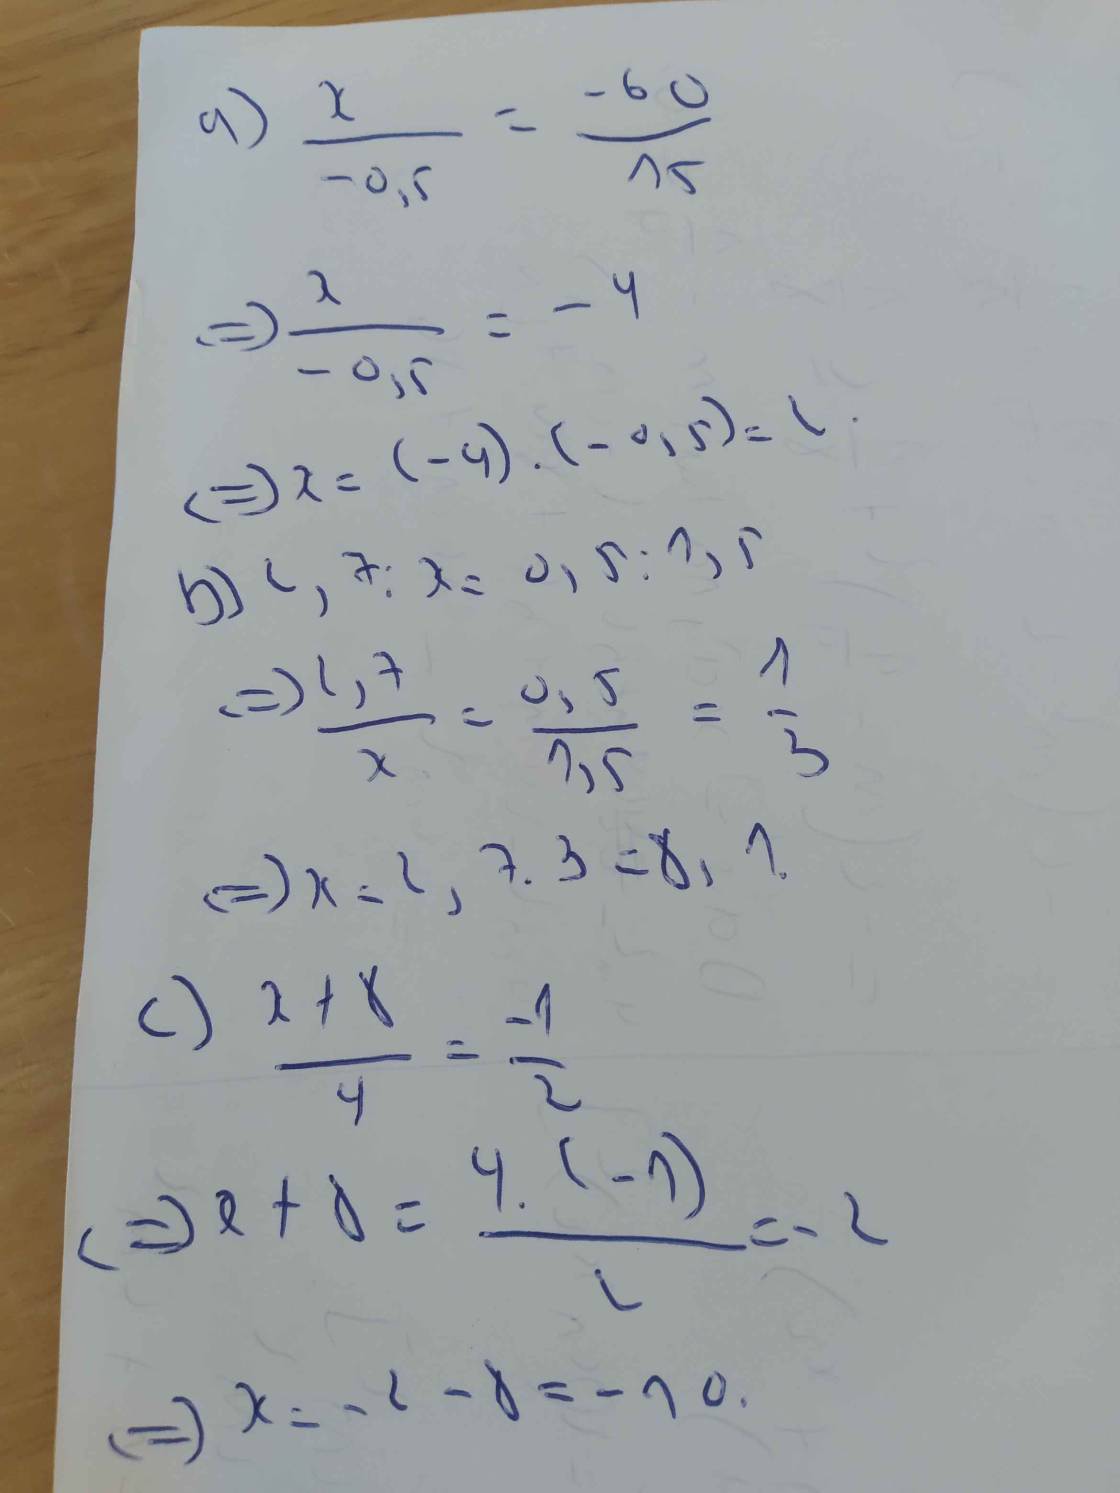 a) x/-0,5 = -60/15
<=> x/-0,5 = -4
<=> x = (-4).(-0,5) = 2.
b) 2,7: x = 0,5: 1,5
<=> 2,7/x = 0,5/1,5 = 1/3
<=> x = 2,7.3 = 8,1.
c) x+8/4 = -1/2
<=> x+8 = 4.(-1)/2 = -2
<=> x = -2-8 = -10.